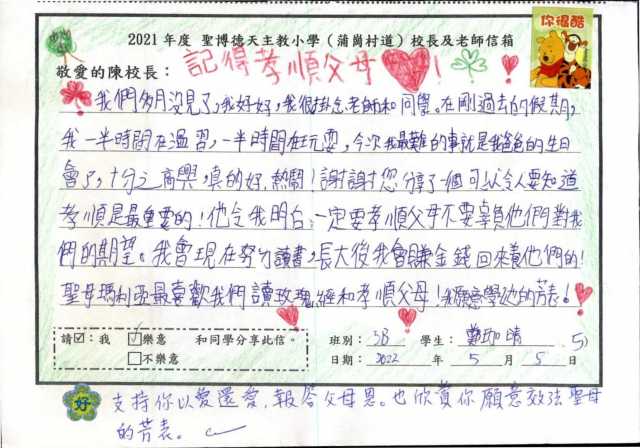 你很酷
2021年度 聖博德天主教小學(蒲崗村道)校長及老師信箱
敬愛的陳校長：
記得孝順父母！
我們多月沒見了，我好好，我很掛念老師和同學。在剛過去的假期，
我一半時間在溫習，一半時間在玩耍，今次我最難的事就是我爸爸的生日
會了，十分之高興，真的好熱鬧！謝謝您分享了一個可以令人要知道
孝順是最重要的！他令我明白：一定要孝順父母不要辜負他們對我
們的期望。我會現在努力讀書，長大後我會賺金錢回來養他們的！
聖母瑪利亞最喜歡我們讀玫瑰經和孝順父母！我願意學她的芳表！
請☑：我 ☑樂意 和同學分享此信。 班別： 3B 學生： 鄭 晴 5)
□不樂意 日期： 2022 年 5 月 5 日
好
支持你以愛還愛，報答父母恩。也欣賞你願意效法聖母
的芳表。